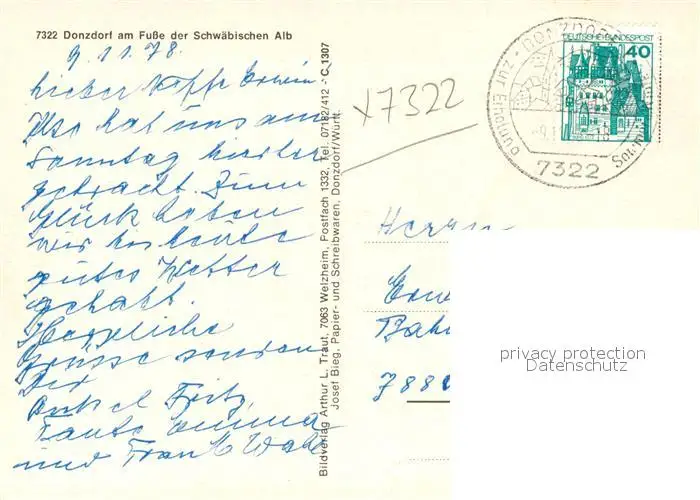 7322 Donzdorf am Fuße der Schwäbischen Alb
9.11.78.
Lieber Neffe Erwin
Uso hat uns am
Sonntag hierher
gebracht. Zum
Glück haben
wir bis heute
gutes Wetter
gehabt.
Herzliche
Grüsse senden
Dir
Onkel Fritz,
Tante Emma
und Frank
Bildverlag Arthur L. Traut, 7063 Welzheim, Postfach 1332, Tel. 07182/412 - C, 1307
Josef Bieg, Papier- und Schreibwaren, Donzdorf/Württ.
x7322
DONZDORF
7322
DEUTSCHE BUNDESPOST
40
Herrn
Erw
Bah
privacy protection
Datenschutz
788